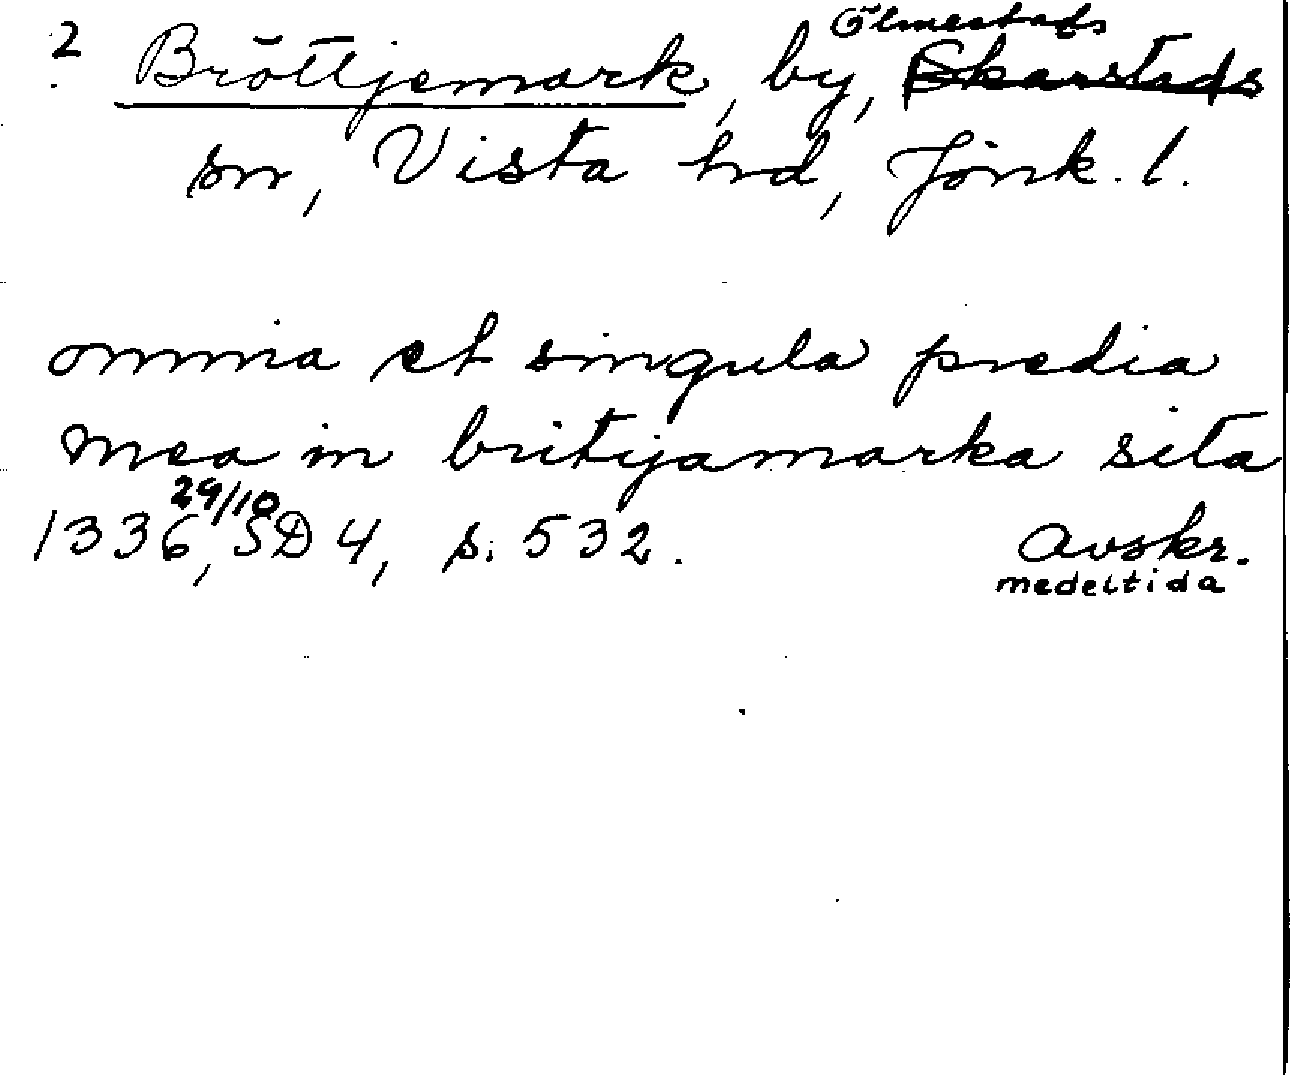 2 Ölmestads
Bröttjemark, by, Skarstads
sn, Vista hd, Jönk. l.
omnia et singula predia
mea in britijamarka sita
29/10
1336, SD 4, s. 532. Avskr.
medeltida